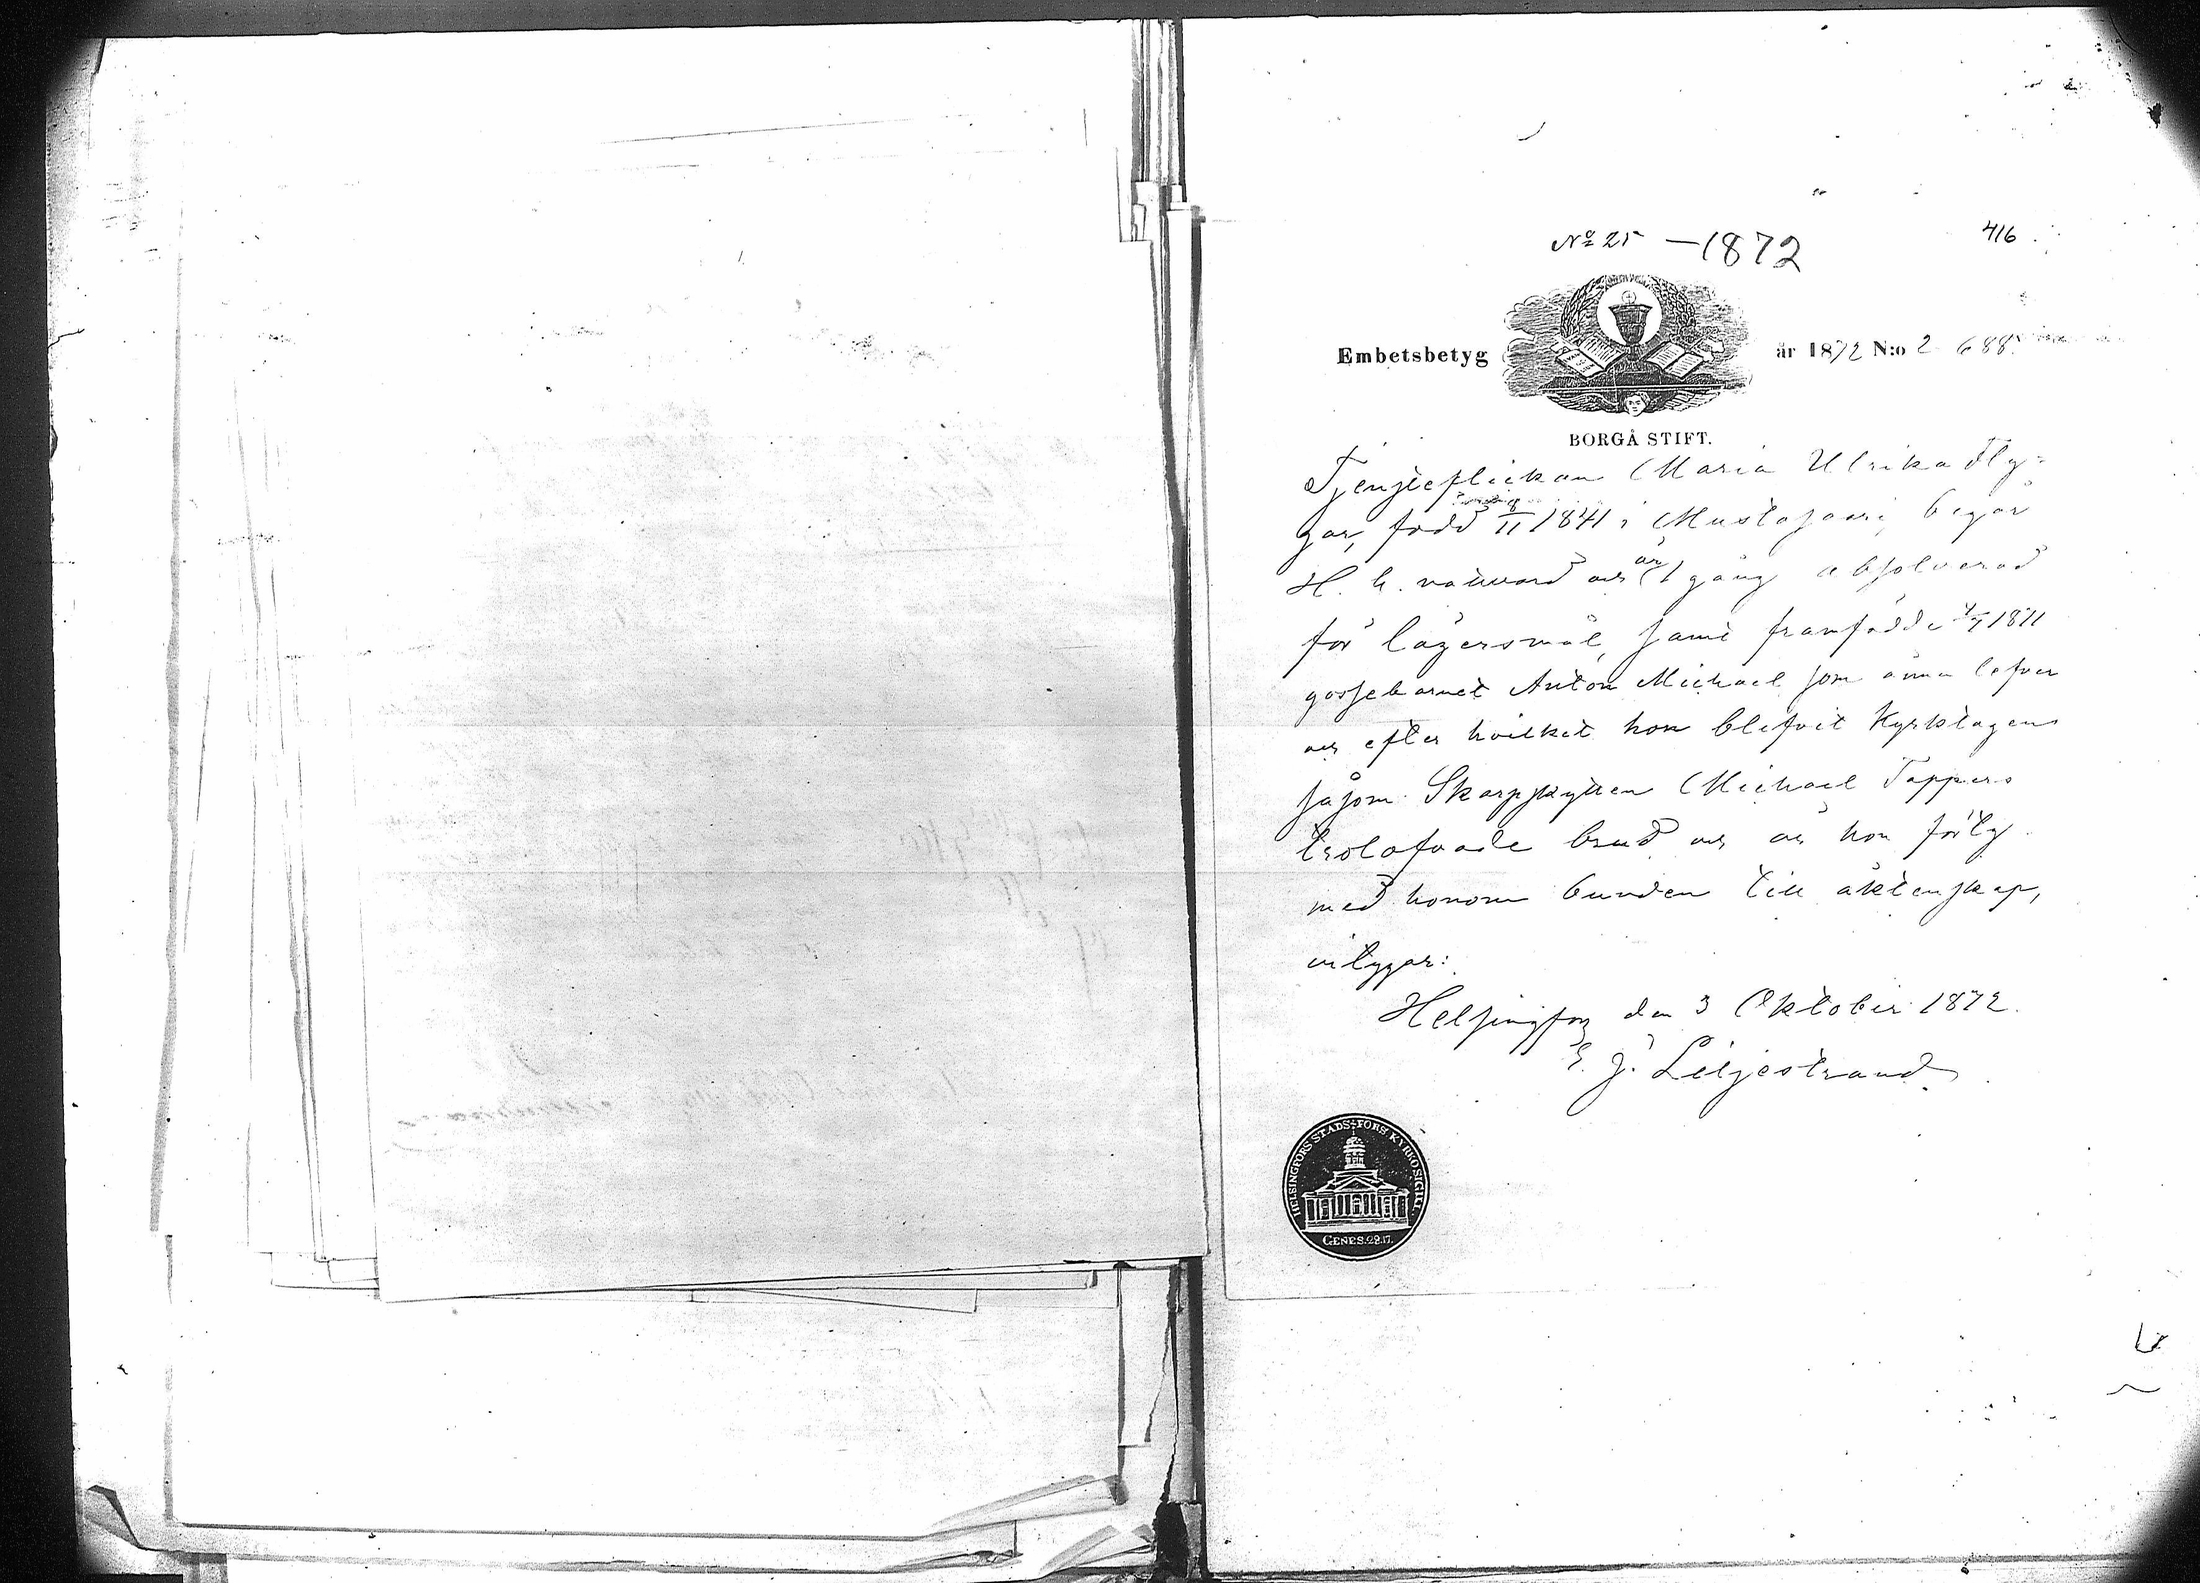 No 25 – 1872
416
Embetsbetyg år 1872 N:o 2688
BORGÅ STIFT.
Tjensteflickan Maria Ulrika Fly-
gar, född 8/II 1841 i Mustasaari, begår
H. h. nattvard och är 1 gång absolverad
för lägersmål, samt framfödde 4/I 1871
gossebarnet Anton Michael som ännu lefver
och efter hvilket hon blefvit Kyrktagen
såsom Skarpskytten Michael Tappers
trolofvade brud och är hon förty
med honom bunden till äktenskap,
intygar:
Helsingfors den 3 Oktober 1872.
E. J. Liljestrand
HELSINGFORS STADS-FÖRS. KYRKOSIGILL.
GENES. 28.17.